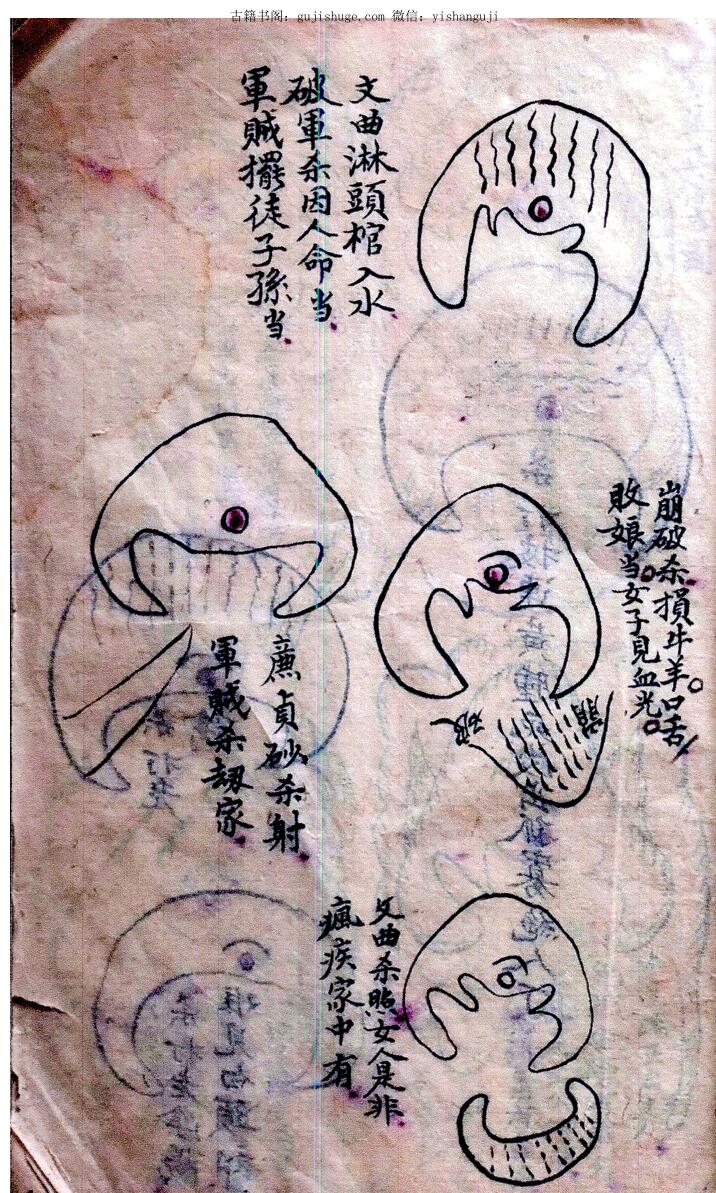 古籍书阁: gujishuge.com 微信: yishanguji
文曲淋頭棺入水
破軍杀因人命当
軍賊擺徒子孫当
崩破杀損牛羊口舌
敗娘当女子見血光
崩
破
廉貞砂杀射
軍賊杀劫家
文曲杀照女人是非
瘋疾家中有